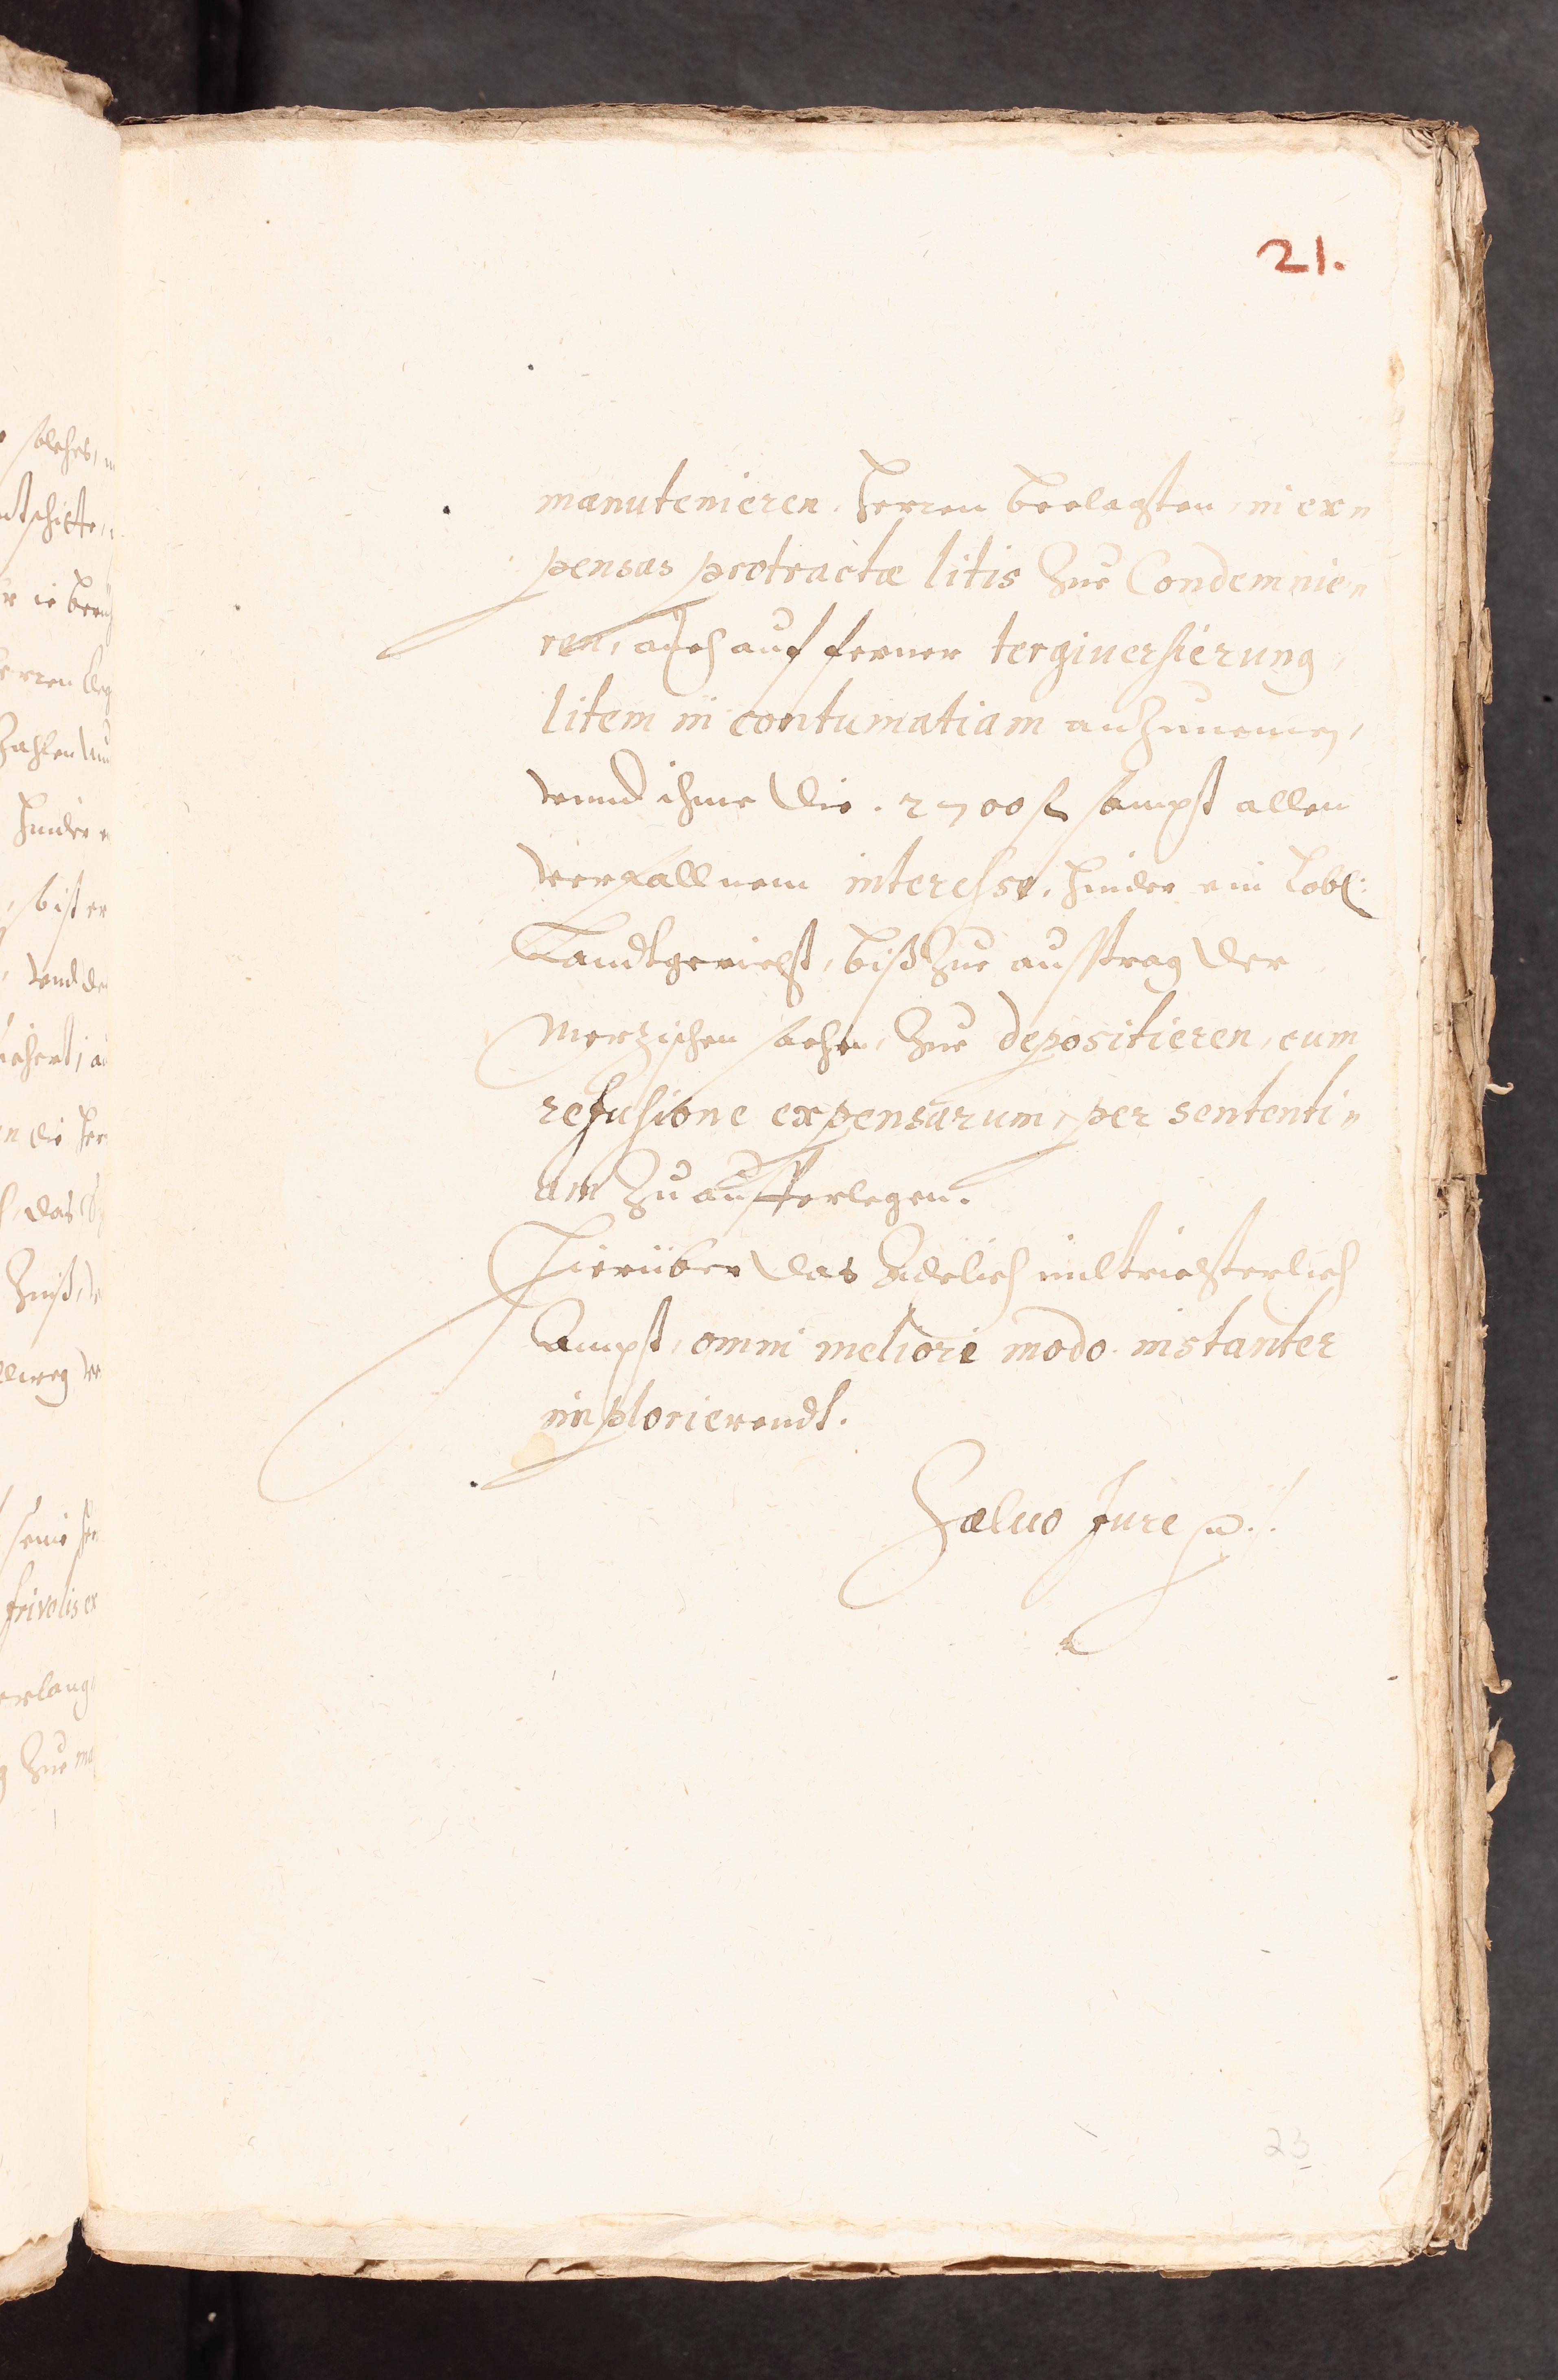 21.
manutenieren, Herren beclagten, in ex=
pensas protractæ litis Zue Condemnie=
ren, auch auf ferner tergiuersierung,
litem in contumatiam anzunemen,
vnnd ihme die . 2700 fl sampt allen
verfallnem interesse, hinder ein Lobl:
Landtgericht, biß Zue austrag der
Merzischen sachen, Zue depositieren, cum
refusione expensarum, per sententi=
am Zu aufferlegen.
Hierüber das Adelich miltrichterlich
Ampt, omni meliori modo instanter
implorierendt.
Saluo Jure
23